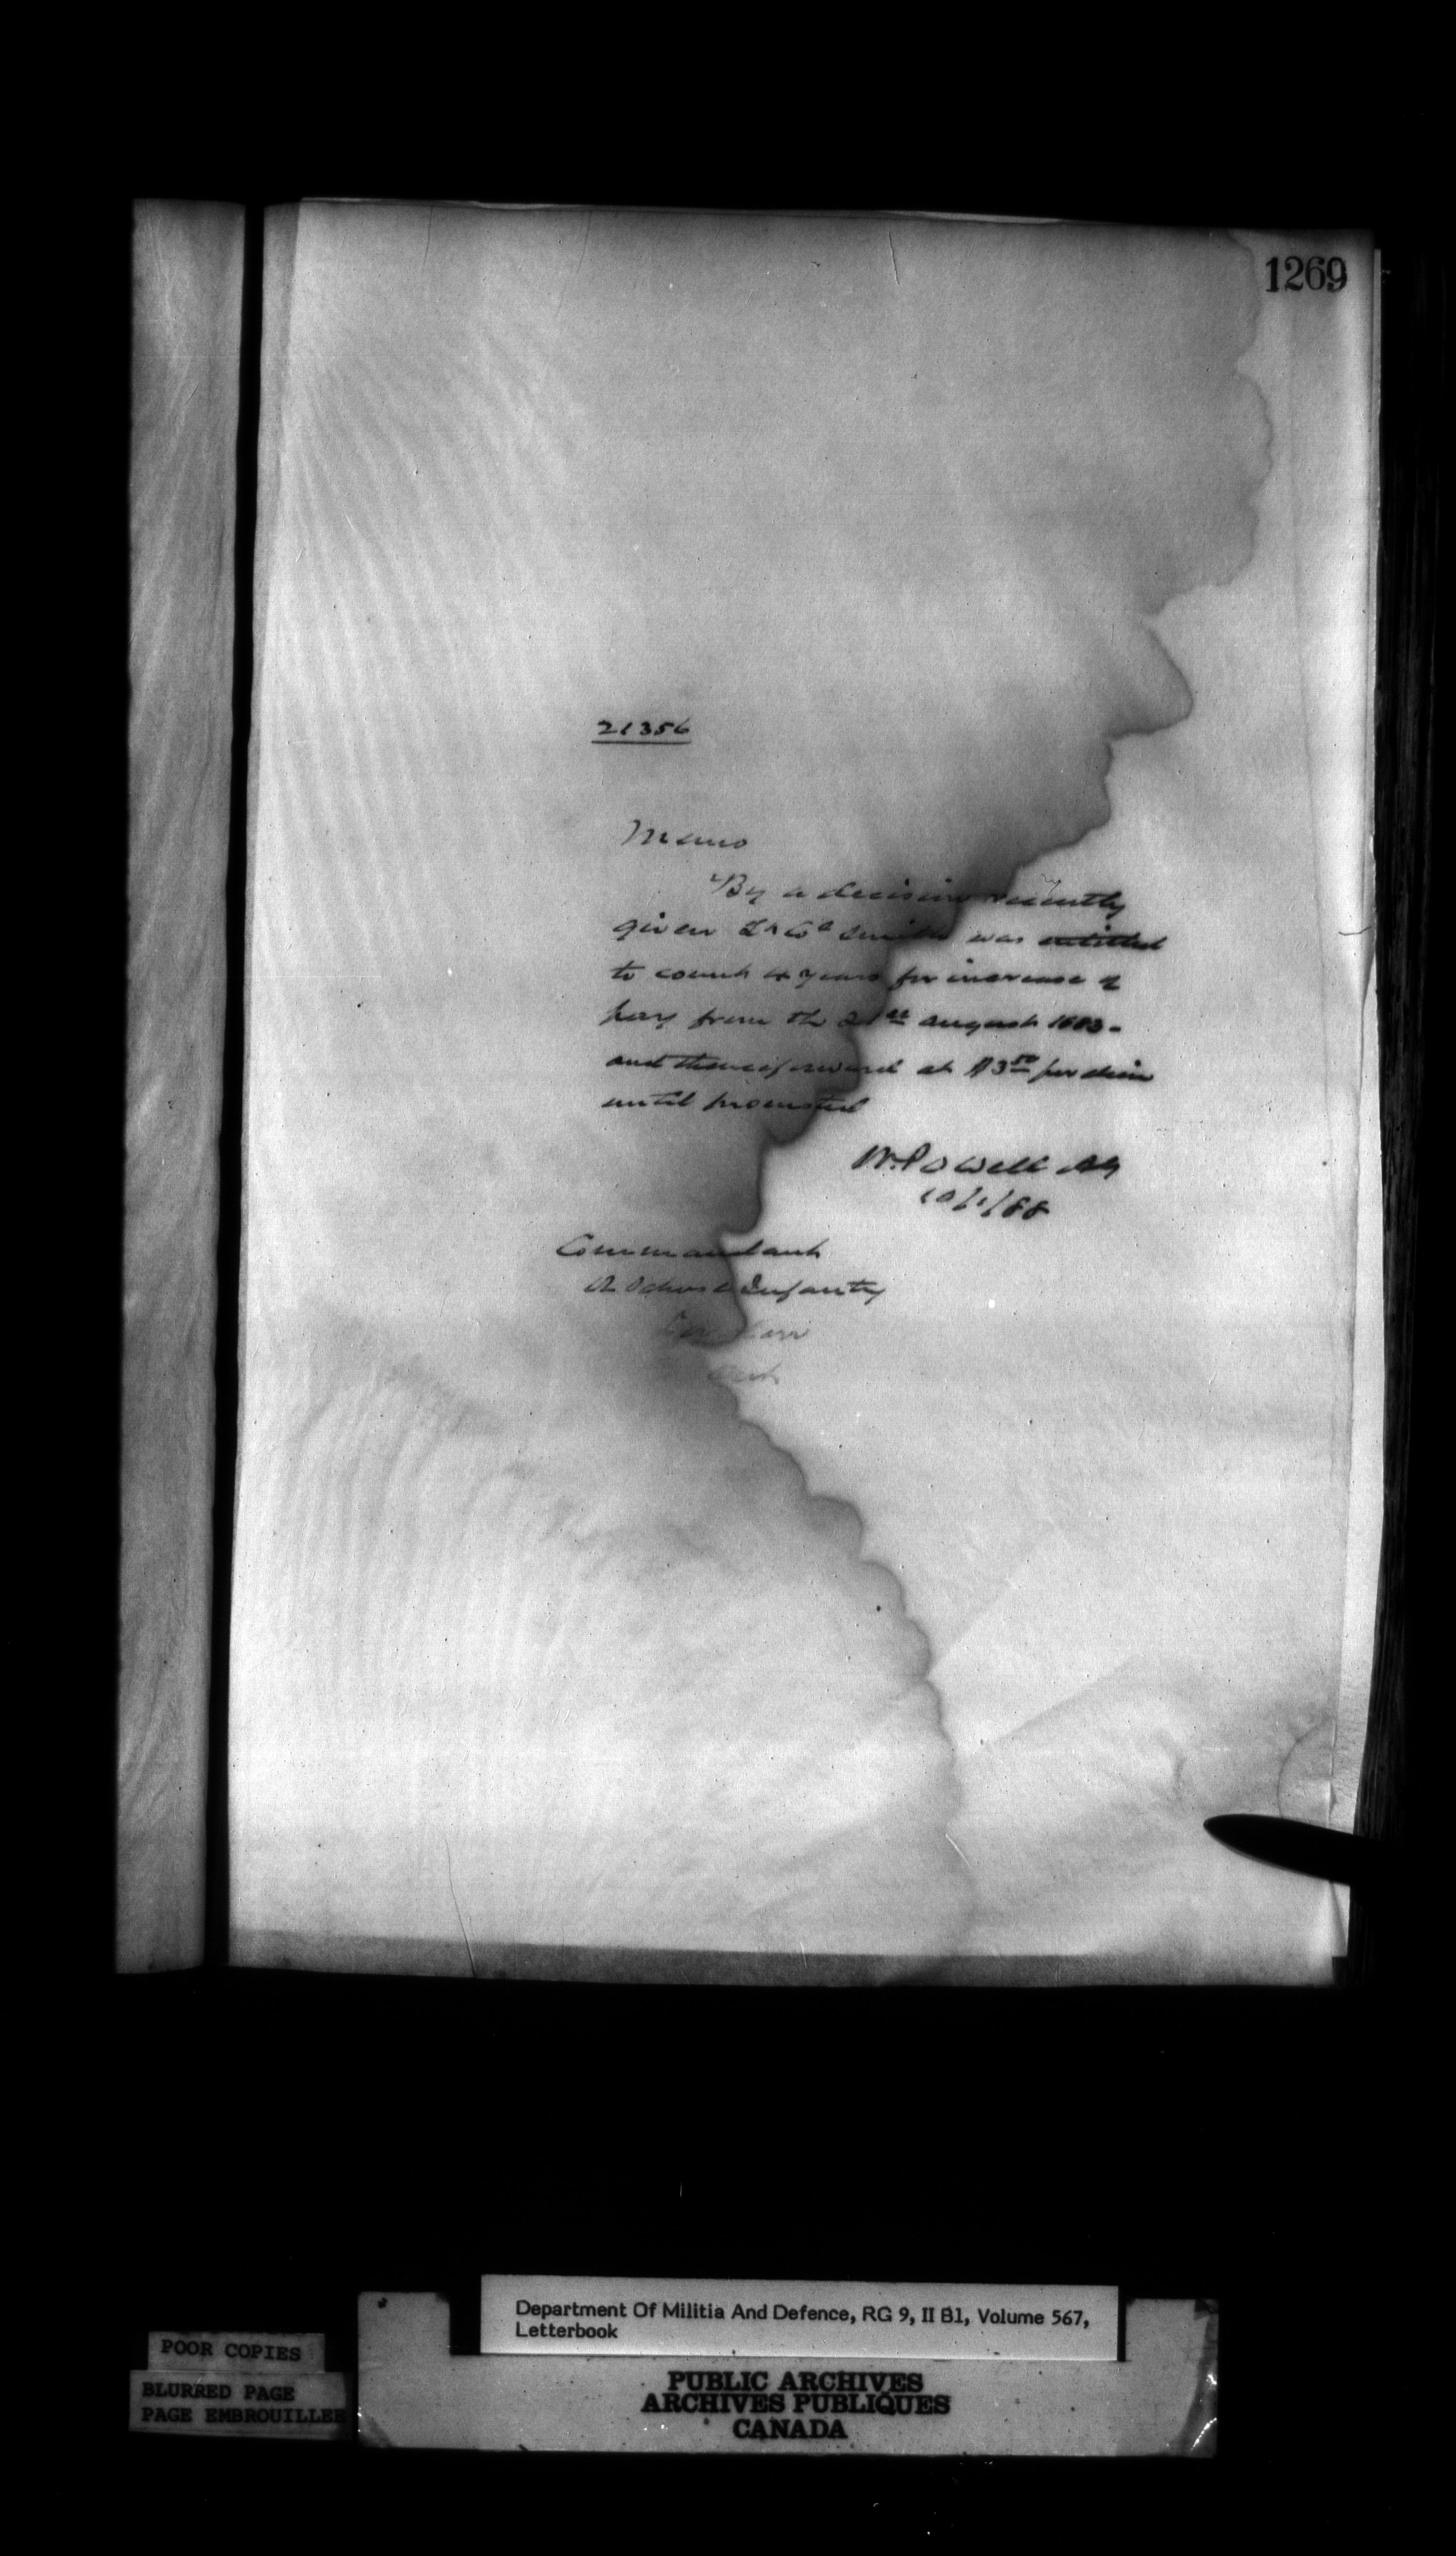 1269
21356
Memo
By a decision recently
given Lt Col Smith was entitled
to count 4 years for increase of
pay from the 21st August 1883 -
and thenceforward at $3.50 per diem
until promoted
W. Powell AG
10/1/88
Commandant
Infantry
Department Of Militia And Defence, RG 9, II B1, Volume 567,
Letterbook
POOR COPIES
BLURRED PAGE
PAGE EMBROUILLEE
PUBLIC ARCHIVES
ARCHIVES PUBLIQUES
CANADA